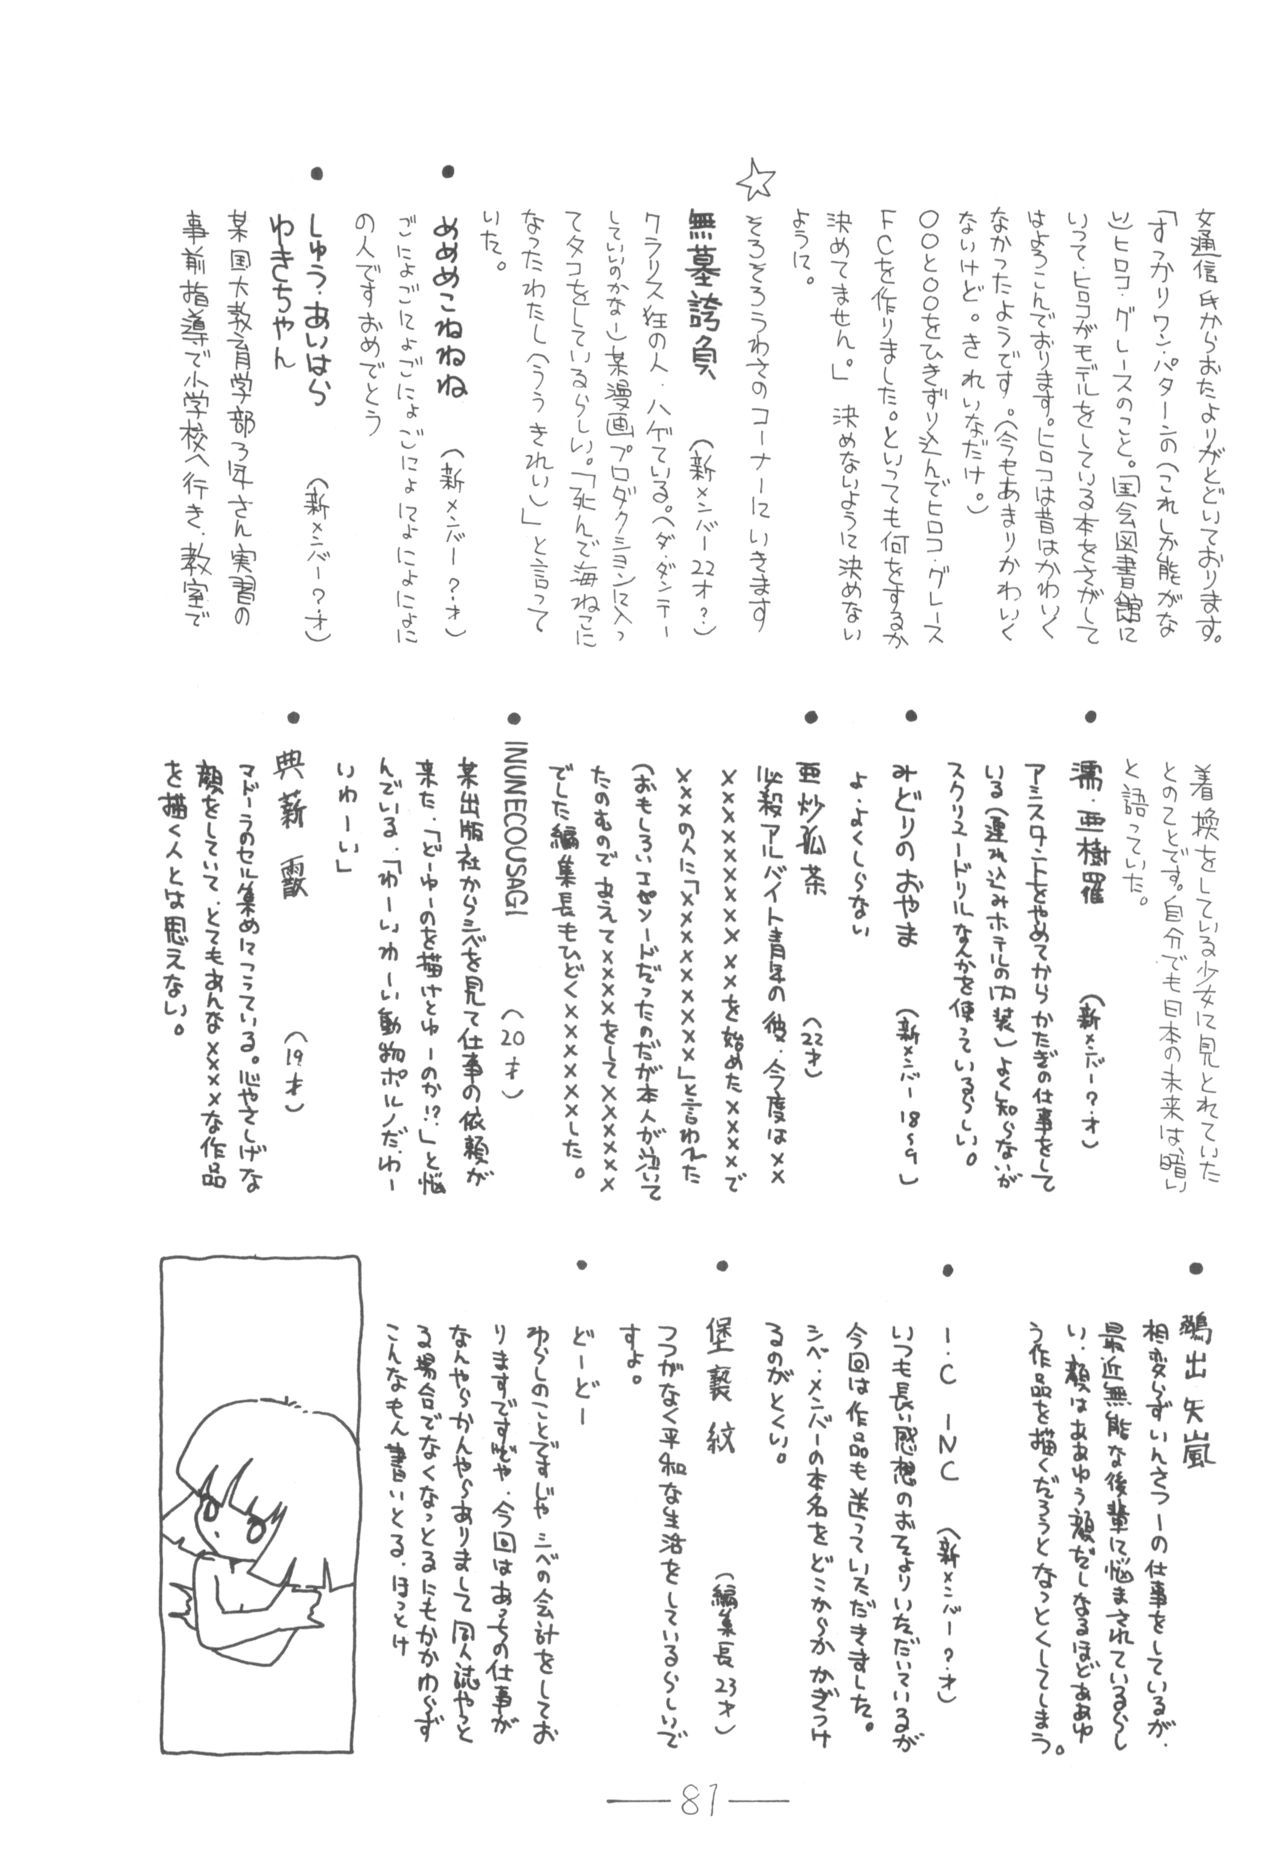 女通信氏からおたよりがとどいております。
「すっかりワンパターンの(これしか能がな
い)ヒロコ・グレースのこと。国会図書館に
いって・ヒロコがモデルをしている本をさがして
はよろこんでおります。ヒロコは昔はかわいく
なかったようです。(今もあまりかわいく
ないけど。きれいなだけ。)
○○と○○をひきずり込んでヒロコ・グレース
FCを作りました。といっても何をするか
決めてません。」決めないように決めない
ように。
☆そろそろうわさのコーナーにいきます
無墓誇負 (新メンバー22才?)
クラリス狂の人・ハゲている。(ダ・ダンテー
していいのかなー)某漫画プロダクションに入っ
てタコをしているらしい。「死んで海ねこに
なったわたし(ううきれい)」と言って
いた。
●めめめこねねね (新メンバー?・才)
ごにょごにょごにょごにょにょにょにょに
の人ですおめでとう
●しゅう・あいはら (新メンバー?・才)
わきちゃん
某国大教育学部3年さん実習の
事前指導で小学校へ行き、教室で
着換をしている少女に見とれていた
とのことです。自分でも日本の未来は暗い
と語っていた。
●濡・亜樹羅 (新メンバー?・才)
アシスタントをやめてからかたぎの仕事をして
いる(連れ込みホテルの内装)よく知らないが
スクリュードリルなんかを使っているらしい。
●みどりのおやま (新メンバー18〜9)
よ・よくしらない
●亜炒孤茶 (22才)
必殺アルバイト青年の彼・今度は××
××××××××××を始めた××××で
×××の人に「××××××××」と言われた
(おもしろいエピソードだったのだが本人が泣いて
たのむのであえて××××をして××××××
でした編集長もひどく××××××した。
●INUNECOUSAGI (20才)
某出版社からシベを見て仕事の依頼が
来た・「どーゆーのを描けとゆーのか!?」と悩
んでいる・「わーいわーい動物ポルノだ・わー
いわーい」
●典薪 (19才)
マドーラのセル集めにこっている。心やさしげな
顔をしていて・とてもあんな××××な作品
を描く人とは思えない。
●出矢嵐
相変らずいんさつーの仕事をしているが・
最近無能な後輩に悩まされているらし
い・顔はああゆう顔だしなるほどああゆ
う作品を描くだろうとなっとくしてしまう。
●I・C INC (新メンバー?・才)
いつも長い感想のおてよりいただいているが
今回は作品も送っていただきました。
シベ・メンバーの本名をどこからかかぎつけ
るのがとくい。
●堡褻紋 (編集長23才)
つつがなく平和な生活をしているらしいで
すよ。
●どーどー
わらしのことですじゃシベの会計をしてお
りますですじゃ・今回はあっちの仕事が
なんやらかんやらありまして同人誌やっと
る場合でなくなっとるにもかかわらず
こんなもん書いとる・ほっとけ
—81—